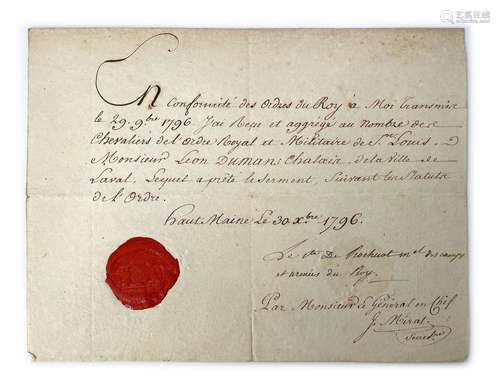 En conformité des Ordres du Roy à Moi Transmis
le 29. 9bre 1796. J'ai Reçu et aggrégé au Nombre des
Chevaliers de l'Ordre Royal et Militaire de St. Louis.
Monsieur Léon Dumans Chalais de la Ville de
Laval, Lequel a prêté le Serment, Suivant les Statuts
de l'Ordre.
haut Maine Le 30 Xbre 1796.
Le Cte De Rochecot mal. des camps
et armées du Roy.
Par Monsieur Le Général en Chef